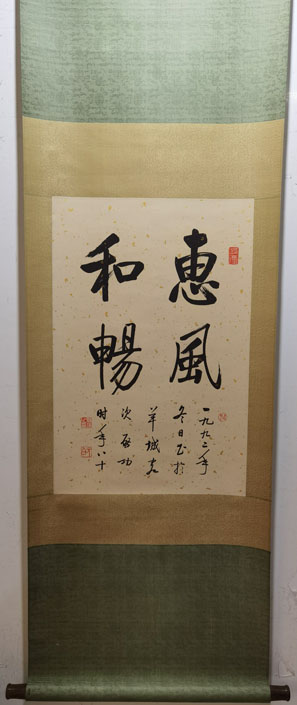 惠風
和暢
一九九二年
冬日書於
羊城客
次啓功
時年八十